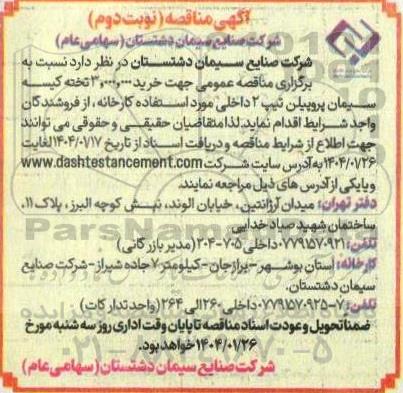 آگهی مناقصه (نوبت دوم)
شرکت صنایع سیمان دشتستان (سهامی عام)
شرکت صنایع سیمان دشتستان در نظر دارد نسبت به
برگزاری مناقصه عمومی جهت خرید ۳,۰۰۰,۰۰۰ تخته کیسه
سیمان پروپیلن تیپ ۲ داخلی مورد استفاده کارخانه، از فروشندگان
واجد شرایط اقدام نماید. لذا متقاضیان حقیقی و حقوقی می توانند
جهت اطلاع از شرایط مناقصه و دریافت اسناد از تاریخ ۱۴۰۴/۰۷/۱۷ لغایت
۱۴۰۴/۰۷/۲۶ به آدرس سایت شرکت www.dashtestancement.com
و یا یکی از آدرس های ذیل مراجعه نمایند.
دفتر تهران: میدان آرژانتین، خیابان الوند، نبش کوچه البرز، پلاک ۱۱،
ساختمان شهید صیاد خدایی
تلفن: ۰۷۷۹۱۵۷۰۹۲۱ داخلی ۷۰۵-۲۰۴ (مدیر بازرگانی)
کارخانه: استان بوشهر - برازجان - کیلومتر ۷ جاده شیراز - شرکت صنایع
سیمان دشتستان.
تلفن: ۷-۰۷۷۹۱۵۷۰۹۲۵ داخلی ۲۶۰ الی ۲۶۴ (واحد تدارکات)
ضمنا تحویل و عودت اسناد مناقصه تا پایان وقت اداری روز سه شنبه مورخ
۱۴۰۴/۰۱/۲۶ خواهد بود.
شرکت صنایع سیمان دشتستان (سهامی عام)
ParsNamad